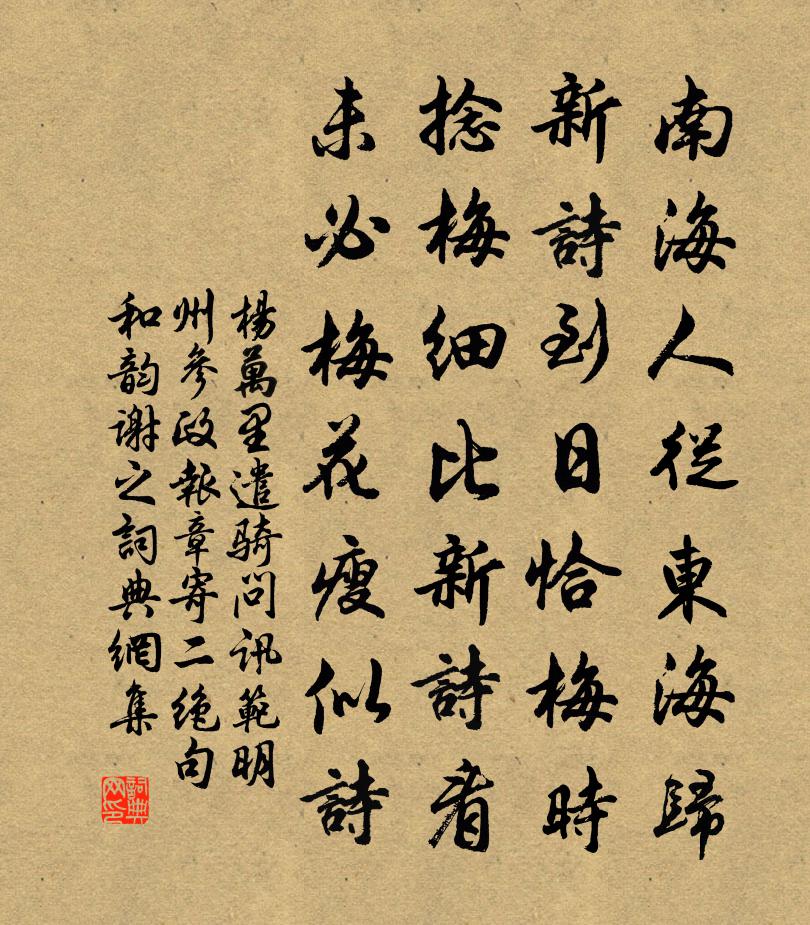 南海人從東海歸
新詩到日恰梅時
捻梅細比新詩看
未必梅花瘦似詩
楊萬里遣騎問訊範明
州參政報章寄二絶句
和韵謝之詞典網集
詞典网印